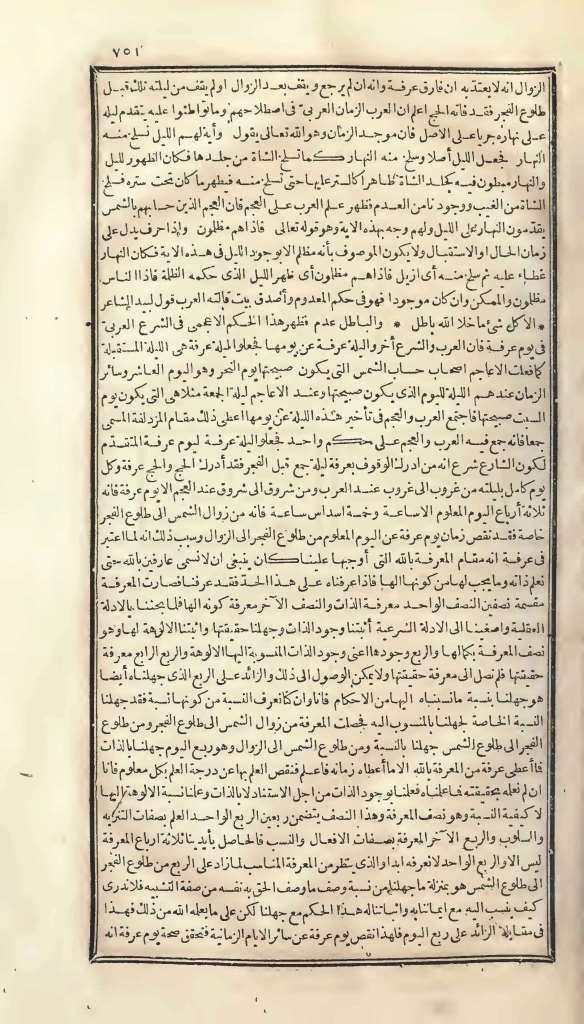 ٧٥١
الزوال انه لا يعتدّ به ان فارق عرفة وانه ان لم يرجع ويقف بعد الزوال او لم يقف من ليلته تلك قبل
طلوع الفجر فقد فاته الحج اعلم ان العرب الزمان العربيّ فى اصطلاحهم وما تواطئوا عليه يتقدم ليله
على نهاره جريا على الاصل فان موجد الزمان وهو الله تعالى يقول وآية لهم الليل نسلخ منه
النهار فجعل الليل أصلا وسلخ منه النهار كما تسلخ الشاة من جلدها فكان الظهور لليل
والنهار مبطون فيه كجلد الشاة ظاهرا كالستر عليها حتى تسلخ منه فيظهر ما كان تحت ستره فسلخ
الشاة من الغيب ووجودنا من العدم فظهر علم العرب على العجم فان العجم الذين حسابهم بالشمس
يقدمون النهار على الليل ولهم وجه بهذه الآية وهو قوله تعالى فاذا هم مظلمون واذا حرف يدل على
زمان الحال او الاستقبال ولا يكون الموصوف بأنه مظلم الا بوجود الليل فى هذه الاية فكان النهار
غطاء عليه ثم سلخ منه أى ازيل فاذا هم مظلمون أى ظهر الليل الذى حكمه الظلمة فاذا الناس
مظلمون والممكن وان كان موجودا فهو فى حكم المعدوم وأصدق بيت قالته العرب قول لبيد الشاعر
* الا كل شئ ما خلا الله باطل * والباطل عدم فظهر هذا الحكم الاعجمى فى الشرع العربيّ
فى يوم عرفة فان العرب والشرع أخر واليلة عرفة عن يومها فجعلوا ليلة عرفة هى الليلة المستقبلة
كما فعلت الاعاجم اصحاب حساب الشمس التى يكون صبيحتها يوم النحر وهو اليوم العاشر وسائر
الزمان عندهم الليلة لليوم الذى يكون صبيحتها وعند الاعاجم ليلة الجمعة مثلا هى التى يكون يوم
السبت صبيحتها فاجتمع العرب والعجم فى تأخير هذه الليلة عن يومها اعطى ذلك مقام المزدلفة المسمى
جمعا فانه جمع فيه العرب والعجم على حكم واحد فجعلوا ليلة عرفة ليوم عرفة المتقدّم
لكون الشارع شرع انه من ادرك الوقوف بعرفة ليلة جمع قبل الفجر فقد أدرك الحج والحج عرفة وكل
يوم كامل بليلته من غروب الى غروب عند العرب ومن شروق الى شروق عند العجم الا يوم عرفة فانه
ثلاثة أرباع اليوم المعلوم الا ساعة وخمسة اسداس ساعة فانه من زوال الشمس الى طلوع الفجر
خاصة فقد نقص زمان يوم عرفة عن اليوم المعلوم من طلوع الفجر الى الزوال وسبب ذلك انه لما اعتبر
فى عرفة انه مقام المعرفة بالله التى أوجبها علينا كان ينبغى ان لا نسمى عارفين بالله حتى
نعلم ذاته وما يجب لها من كونها الها فاذا عرفناه على هذا الحدّ فقد عرفنا فصارت المعرفة
مقسمة نصفين النصف الواحد معرفة الذات والنصف الآخر معرفة كونه الها فلما بحثنا بالادلة
العقلية واصغينا الى الادلة الشرعية أثبتنا وجود الذات وجهلنا حقيقتها واثبتنا الالوهة لها وهو
نصف المعرفة بكمالها والربع وجودها اعنى وجود الذات المنسوبة اليها الالوهة والربع الرابع معرفة
حقيقتها فلم نصل الى معرفة حقيقتها ولا يمكن الوصول الى ذلك والزائد على الربع الذى جهلناه أيضا
هو جهلنا بنسبة ما نسبناه اليها من الاحكام فانا وان كنا نعرف النسبة من كونها نسبة فقد جهلنا
النسبة الخاصة لجهلنا بالمنسوب اليه فحصلت المعرفة من زوال الشمس الى طلوع الفجر ومن طلوع
الفجر الى طلوع الشمس جهلنا بالنسبة ومن طلوع الشمس الى الزوال وهو ربع اليوم جهلنا بالذات
فا اعطى عرفة من المعرفة بالله الا ما أعطاه زمانه فاعلم فنقص العلم بها عن درجة العلم بكل معلوم فانا
ان لم نعلمه بحقيقته فما علمناه فعلمنا بوجود الذات من اجل الاستناد لا بالذات وعلمنا نسبة الالوهة اليها
لا كيفية النسبة وهو نصف المعرفة وهذا النصف يتضمن ربعين الربع الواحد العلم بصفات التنزيه
والسلوب والربع الآخر المعرفة بصفات الافعال والنسب فالحاصل بأيدينا ثلاثة ارباع المعرفة
ليس الا والربع الواحد لا نعرفه ابدا والذى ينظر من المعرفة المناسب لما زاد على الربع من طلوع الفجر
الى طلوع الشمس هو بمنزلة ما جهلنا من نسبة وصف ما وصف الحق به نفسه من صفة التشبيه فلا ندرى
كيف ينسب اليه مع ايماننا به واثباتنا له هذا الحكم مع جهلنا لكن على ما يعلمه الله من ذلك فهذا
فى مقابلة الزائد على ربع اليوم فلهذا نقص يوم عرفة عن سائر الايام الزمانية فتحقق صحة يوم عرفة انه